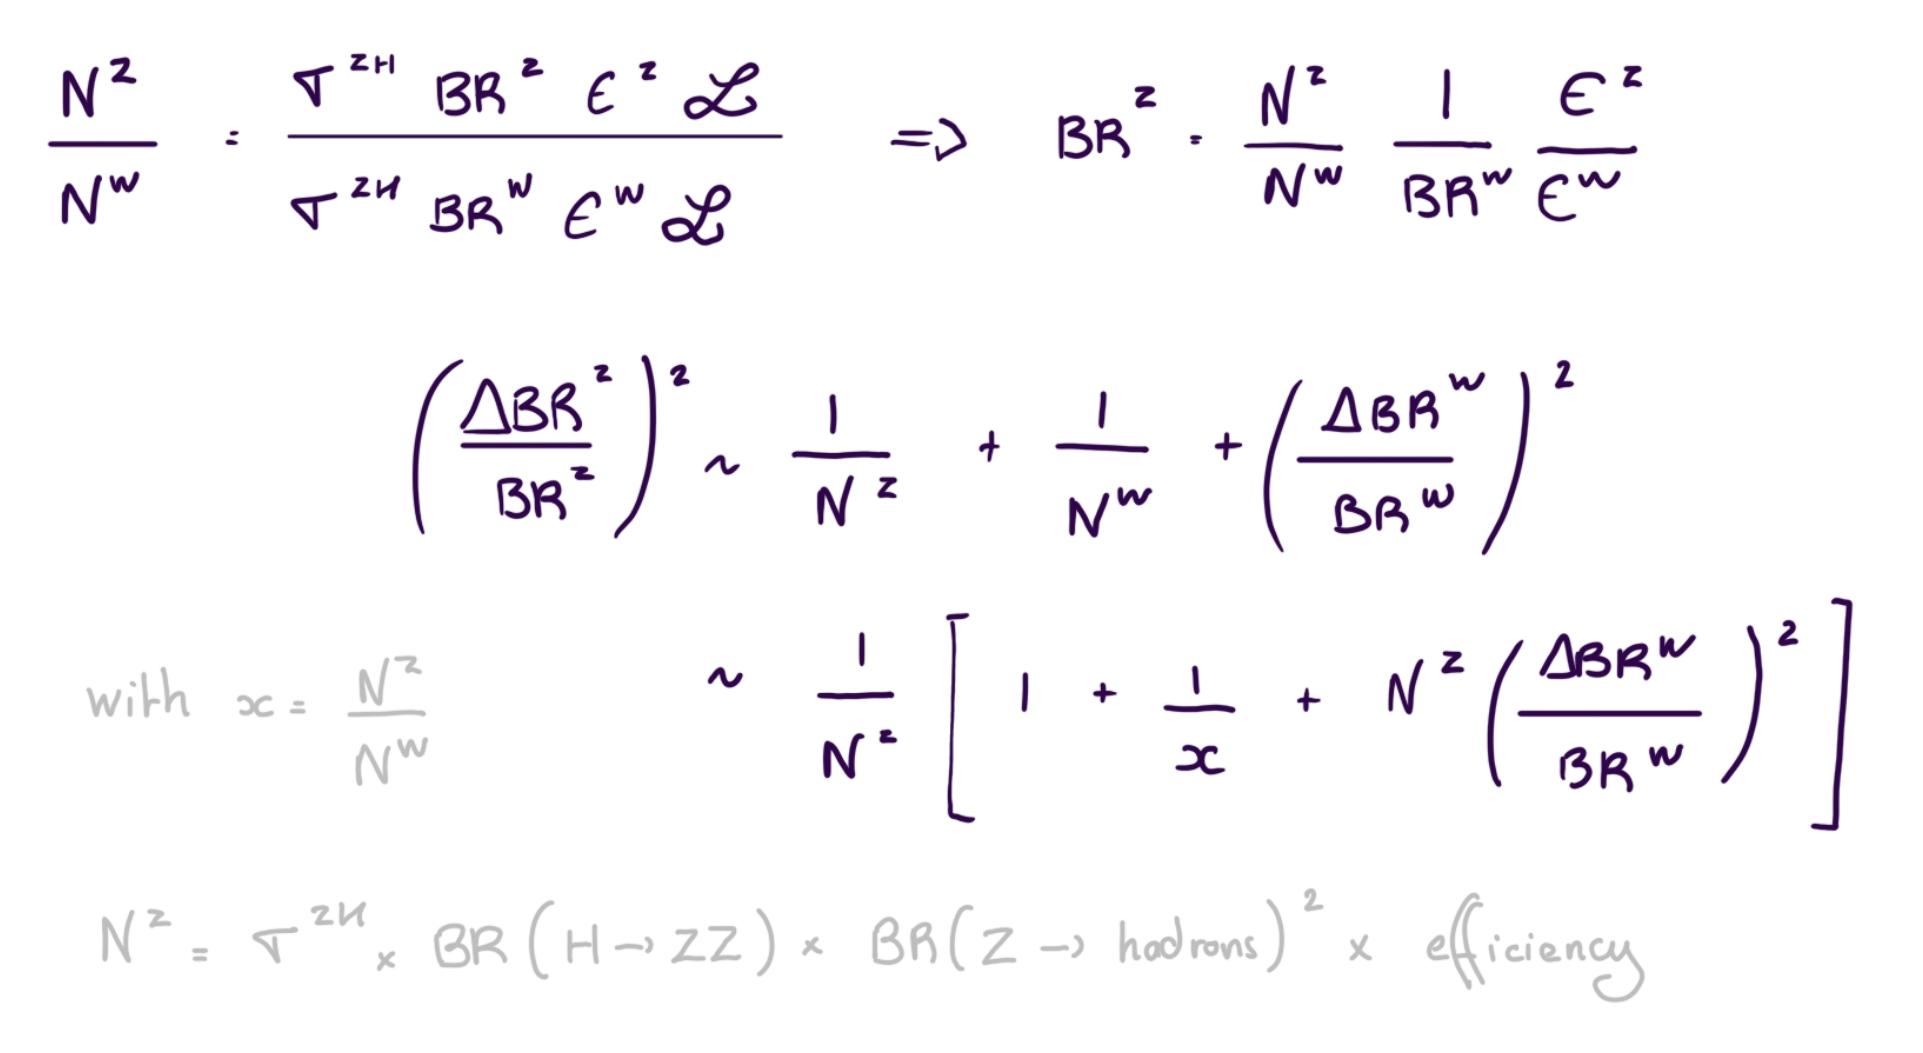 N^Z / N^W = (σ^ZH BR^Z ϵ^Z ℒ) / (σ^ZH BR^W ϵ^W ℒ) => BR^Z = (N^Z / N^W) (1 / BR^W) (ϵ^Z / ϵ^W)
(ΔBR^Z / BR^Z)^2 ~ 1 / N^Z + 1 / N^W + (ΔBR^W / BR^W)^2
with x = N^Z / N^W ~ 1 / N^Z [ 1 + 1 / x + N^Z (ΔBR^W / BR^W)^2 ]
N^Z = σ^ZH x BR(H → ZZ) x BR(Z → hadrons)^2 x efficiency